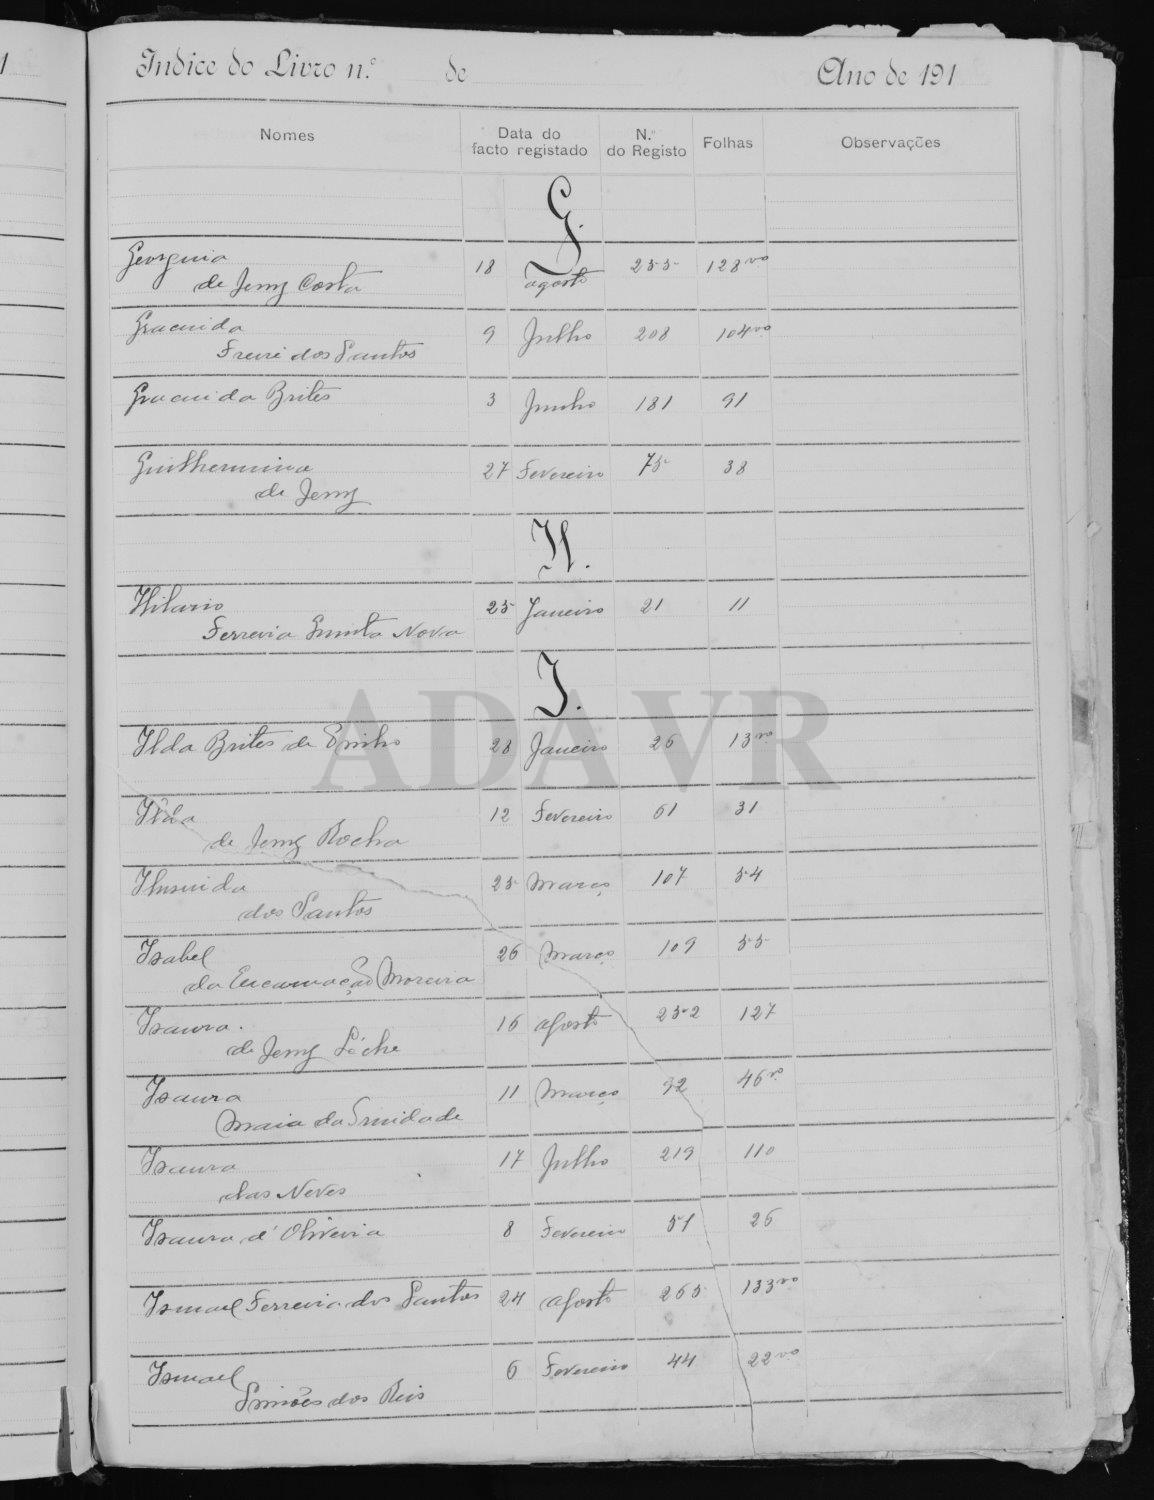 Indice do Livro n.º de Ano de 191
Nomes Data do facto registado N.º do Registo Folhas Observações
G.
Georgina 18 agosto 255 128vo
de Jesus Costa
Gracinda 9 Julho 208 104vo
Freire dos Santos
Gracinda Brites 3 Junho 181 91
Guilhermina 27 Fevereiro 75 38
de Jesus
H.
Hilario 25 Janeiro 21 11
Ferreira Quinta Nova
I.
Ilda Brites de 28 Janeiro 26 13vo
Ilda 12 Fevereiro 61 31
de Jesus Rocha
25 Março 107 54
dos Santos
Isabel 26 Março 109 55
da Encarnação Moreira
Isaura. 16 agosto 252 127
de Jesus
Isaura 11 Março 92 46vo
Maia da Trindade
Isaura 17 Julho 219 110
das Neves
Isaura d'Oliveira 8 Fevereiro 51 26
Ismael Ferreira dos Santos 24 agosto 265 133vo
Ismael 6 Fevereiro 44 22vo
Simões dos Reis
ADAVR